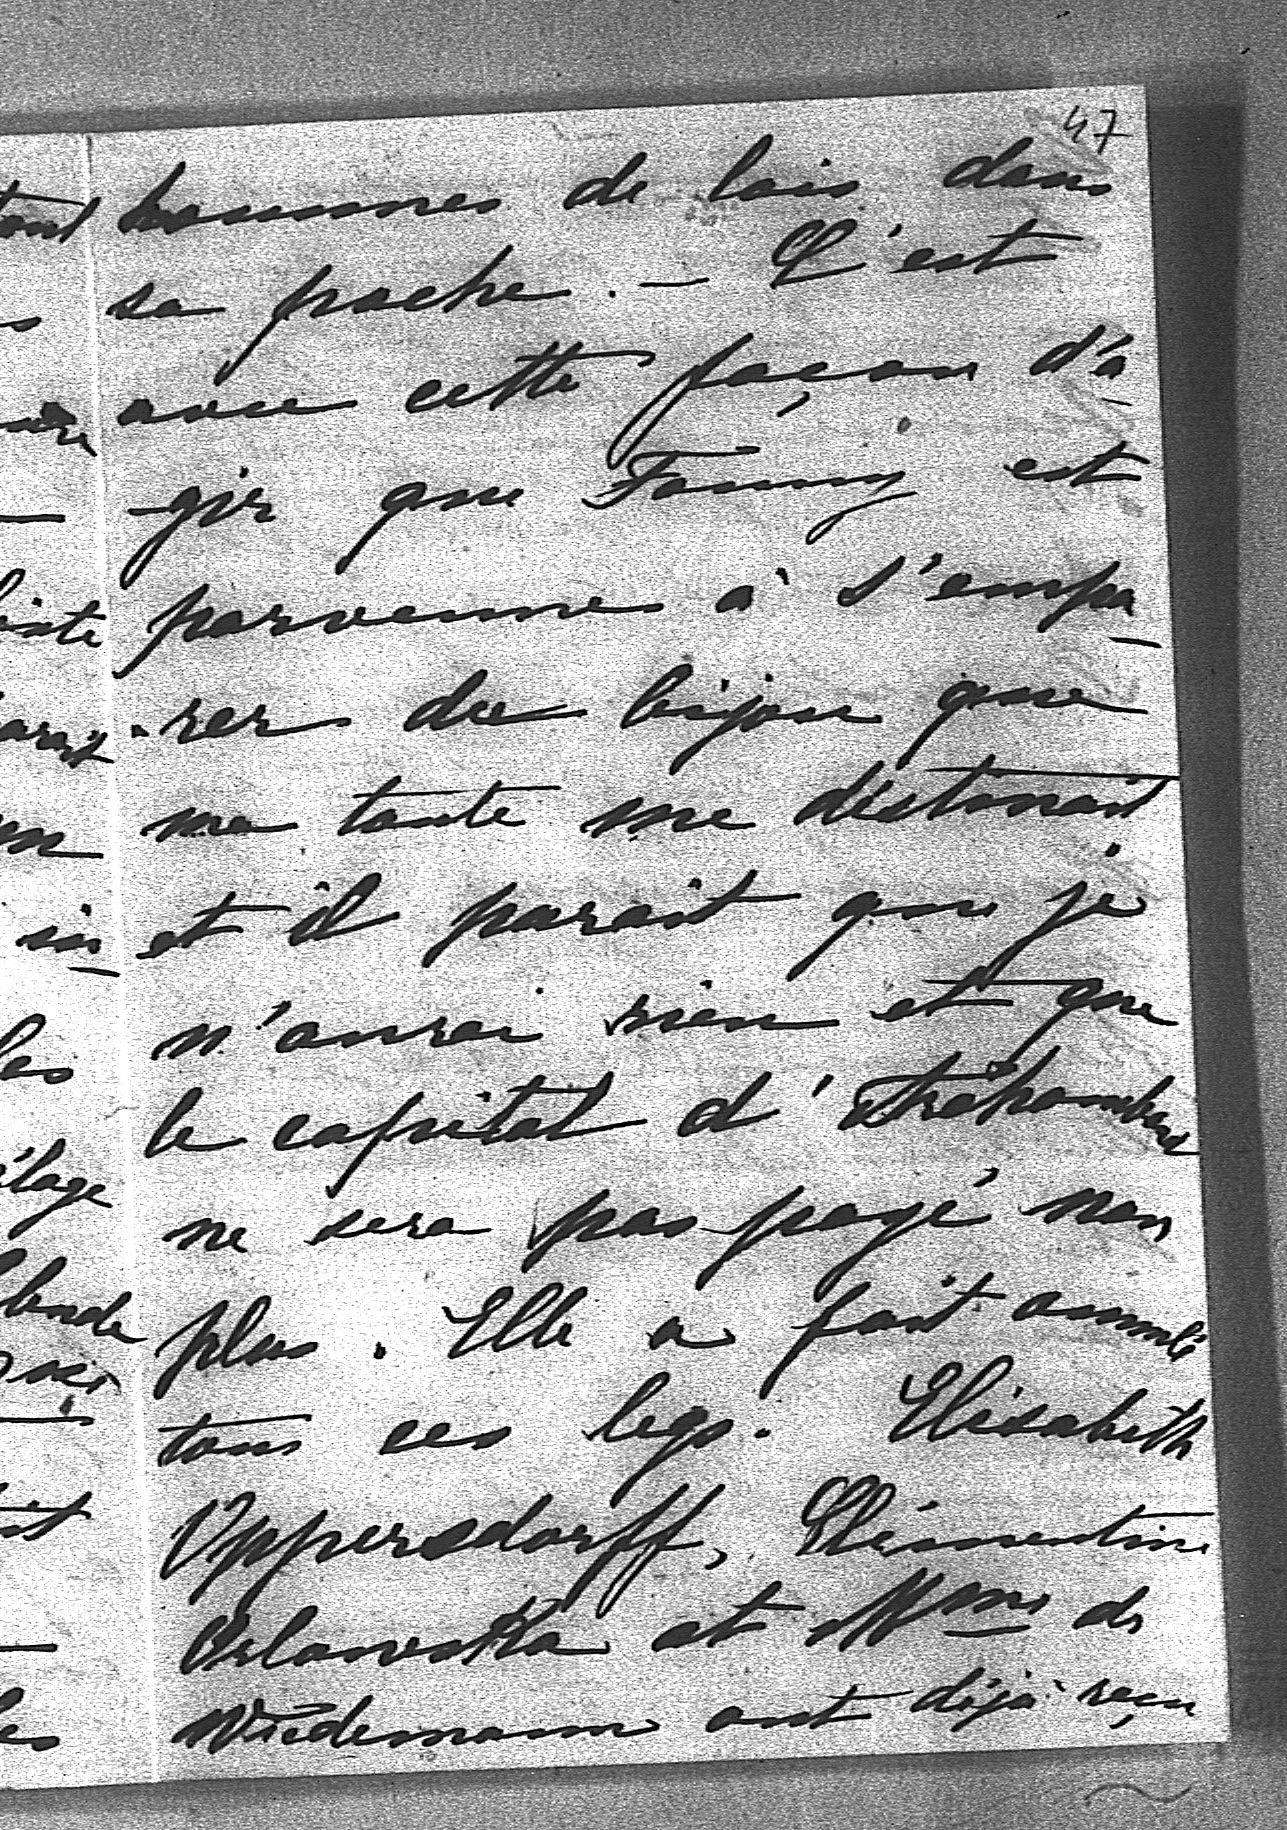 47
hommes de lois dans
sa poche. — C'est
avec cette façon d'a-
-gir que Fanny est
parvenue à s'empa-
-rer du bijou que
ma tante me destinait
et il parait que je
n'aurai rien et que
le capital d'
ne sera pas payé non
plus. Elle a fait annulé
tous ces legs. Elisabeth
Oppersdorff, Clémentine
Orlowska et Mme de
Wiedemann ont déjà reçu